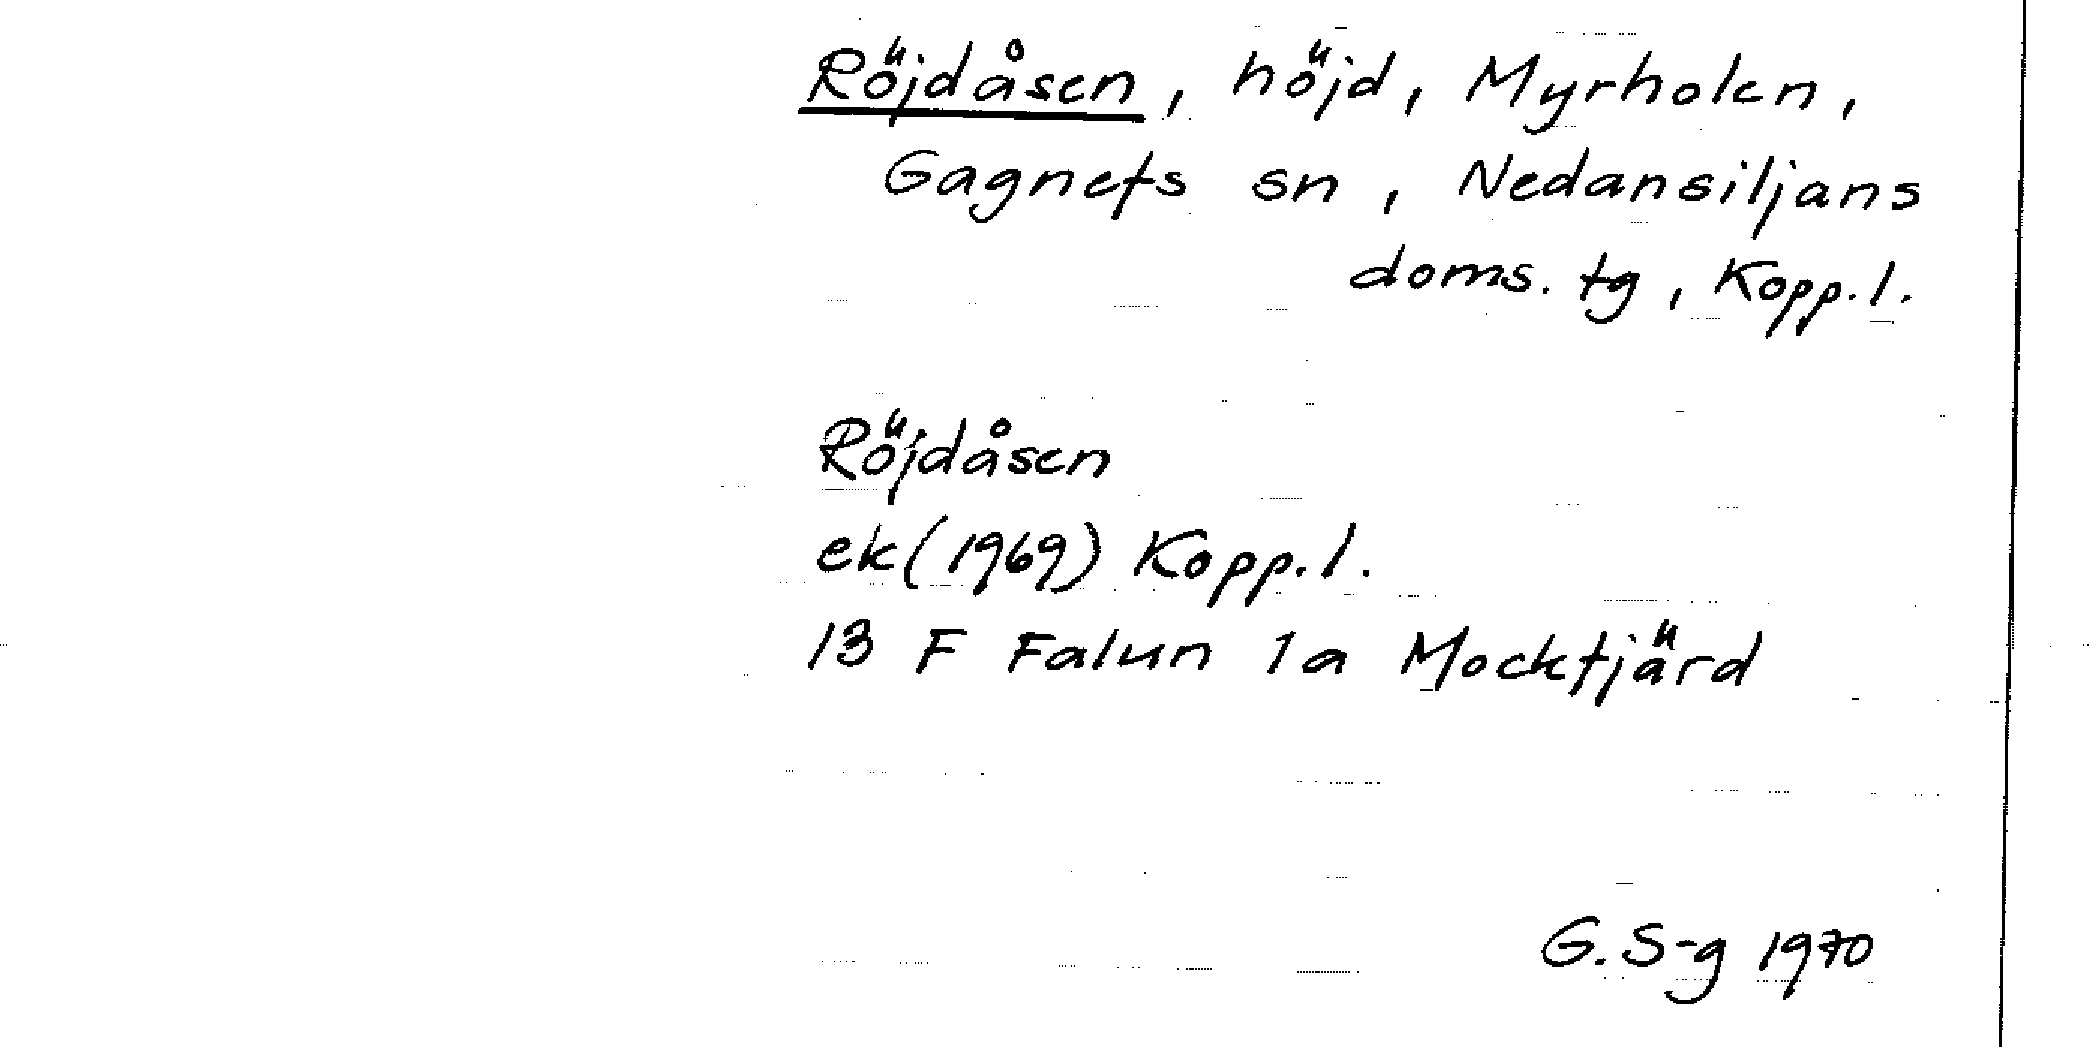 Röjdåsen, höjd, Myrholen,
Gagnefs sn, Nedansiljans
doms. tg, Kopp.l.
Röjdåsen
ek (1969) Kopp.l.
13 F Falun 1a Mockfjärd
G. S-g 1970